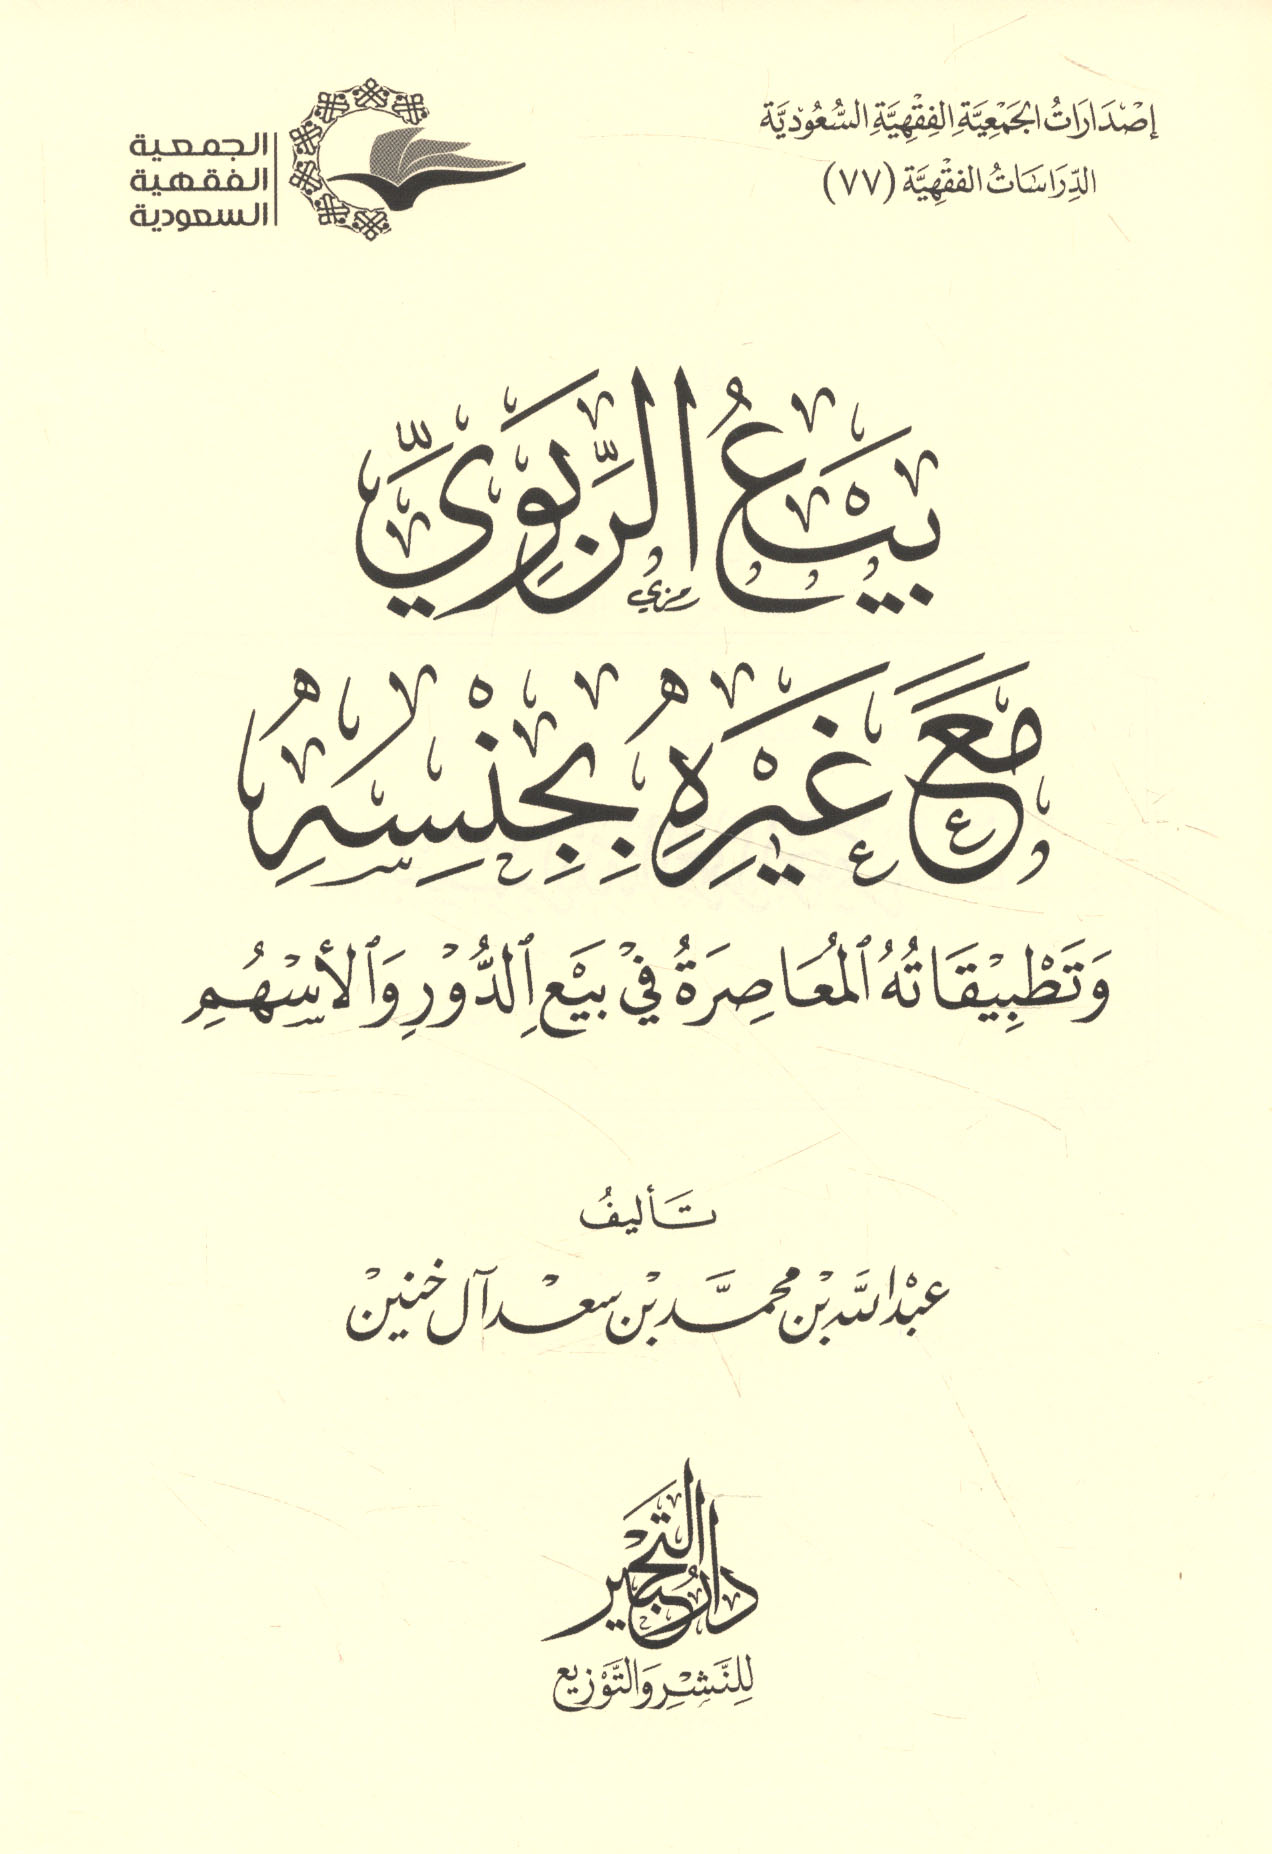 إِصْدَارَاتُ الجَمْعِيَّةِ الفِقْهِيَّةِ السُّعُودِيَّة
الدِّرَاسَاتُ الفِقْهِيَّة (٧٧)
الجمعية
الفقهية
السعودية
بَيْعُ الرِّبَوِيِّ
رمزي
مَعَ غَيْرِهِ بِجِنْسِهِ
وَتَطْبِيْقَاتُهُ ٱلمُعَاصِرَةُ فِيْ بَيْعِ ٱلدُّوْرِ وَٱلأَسْهُمِ
تَأليفُ
عَبْد اللَّه بْن محمَّد بْن سعْد آل خنينْ
دار التحبير
لِلنَّشْرِ وَالتَّوْزِيع